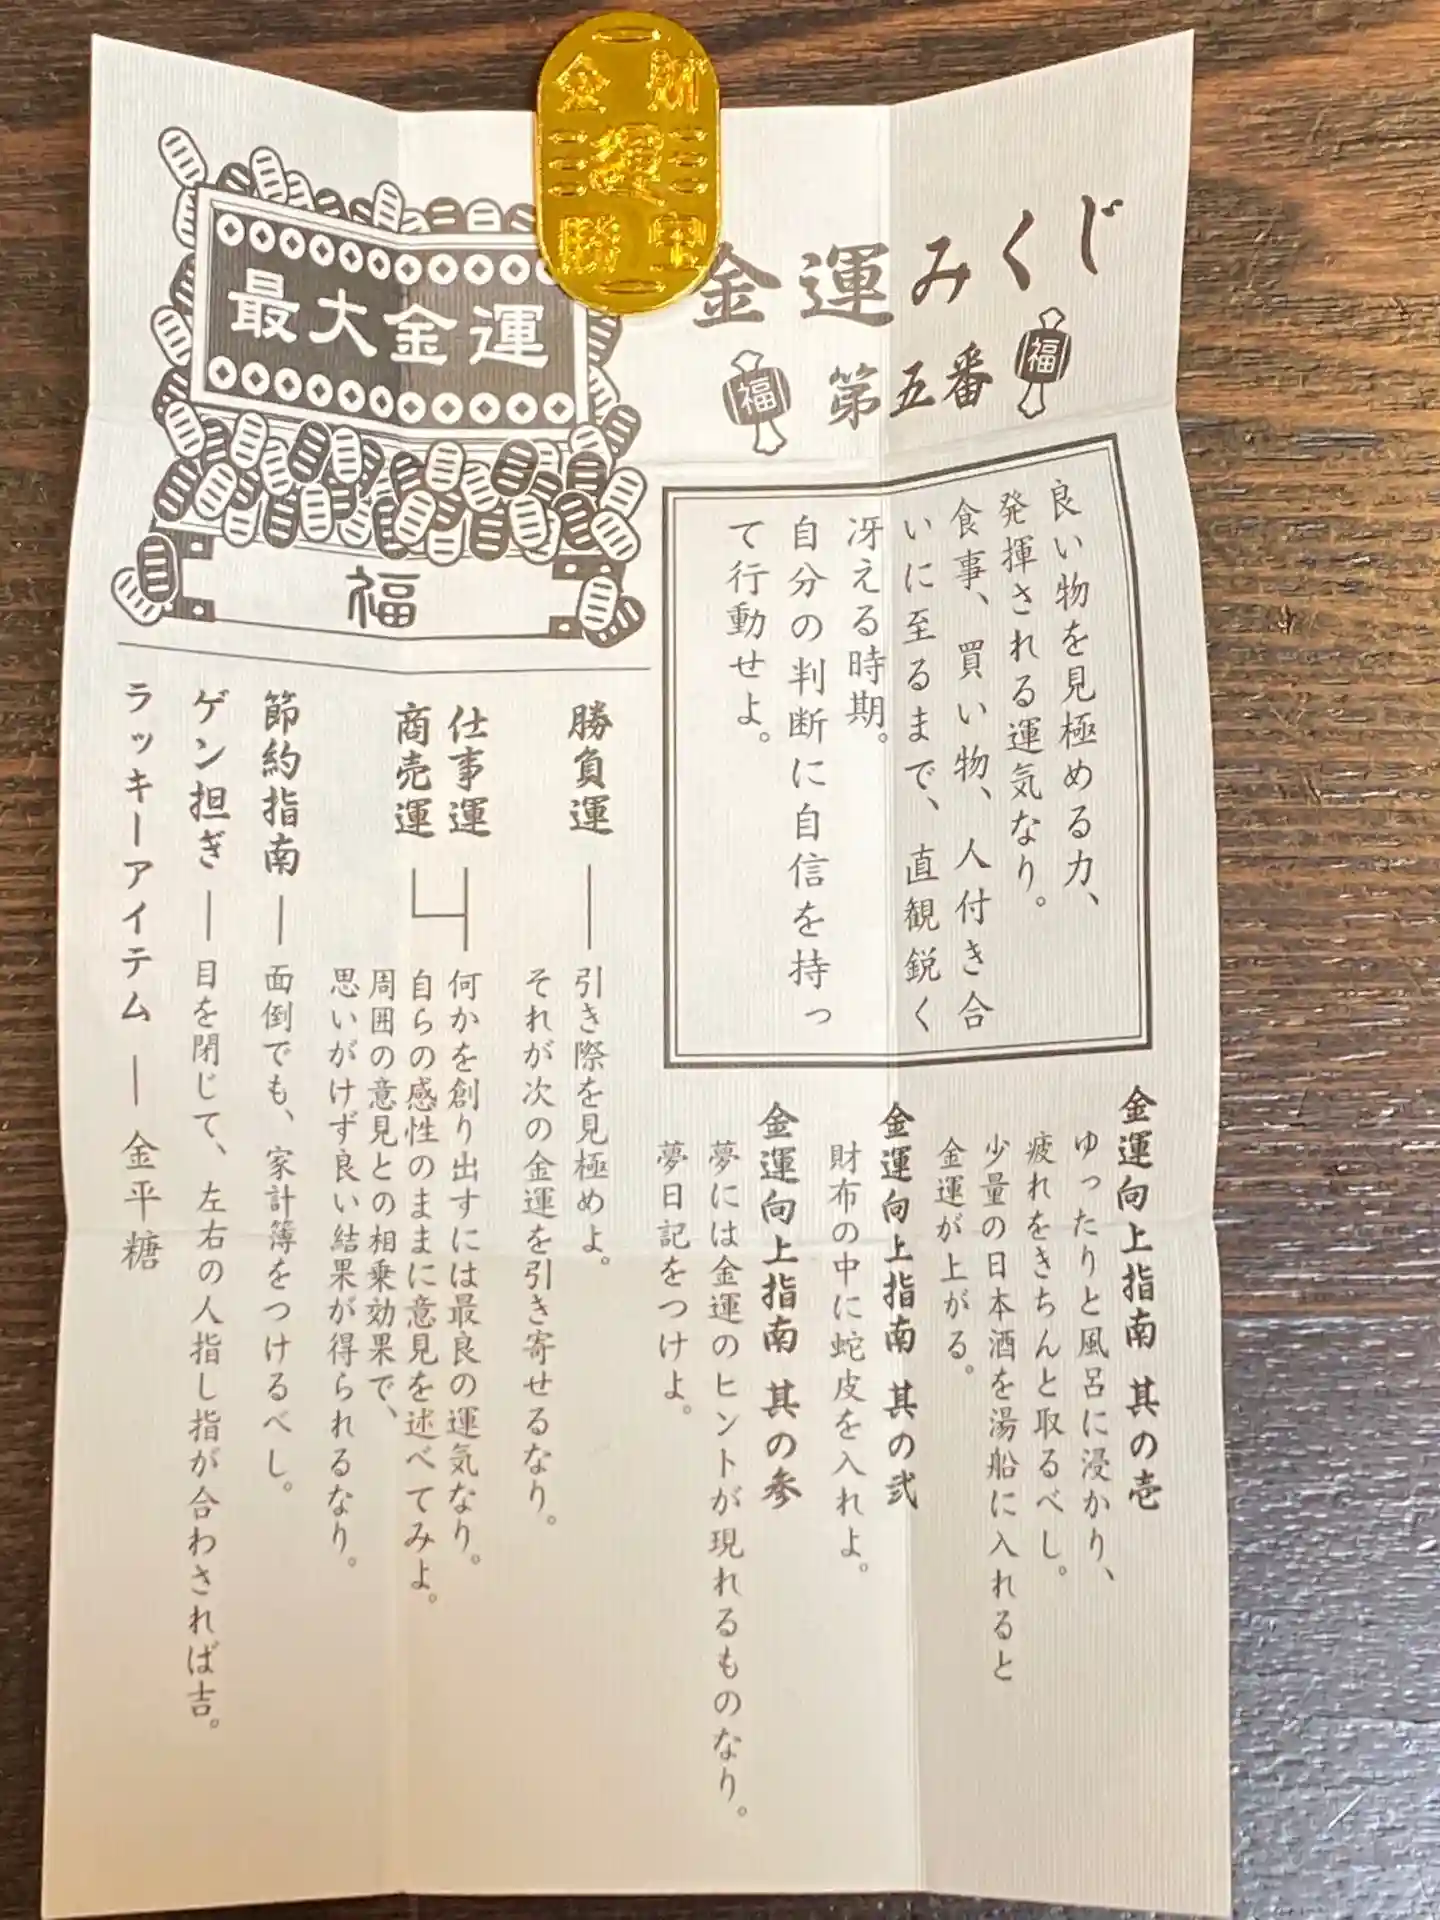 金運みくじ
第五番
福
福
良い物を見極める力、
発揮される運気なり。
食事、買い物、人付き合
いに至るまで、直観鋭く
冴える時期。
自分の判断に自信を持っ
て行動せよ。
金運向上指南 其の壱
ゆったりと風呂に浸かり、
疲れをきちんと取るべし。
少量の日本酒を湯船に入れると
金運が上がる。
金運向上指南 其の弐
財布の中に蛇皮を入れよ。
金運向上指南 其の参
夢には金運のヒントが現れるものなり。
夢日記をつけよ。
最大金運
福
勝負運
引き際を見極めよ。
それが次の金運を引き寄せるなり。
仕事運
商売運
何かを創り出すには最良の運気なり。
自らの感性のままに意見を述べてみよ。
周囲の意見との相乗効果で、
思いがけず良い結果が得られるなり。
節約指南
面倒でも、家計簿をつけるべし。
ゲン担ぎ
目を閉じて、左右の人指し指が合わされば吉。
ラッキーアイテム
金平糖